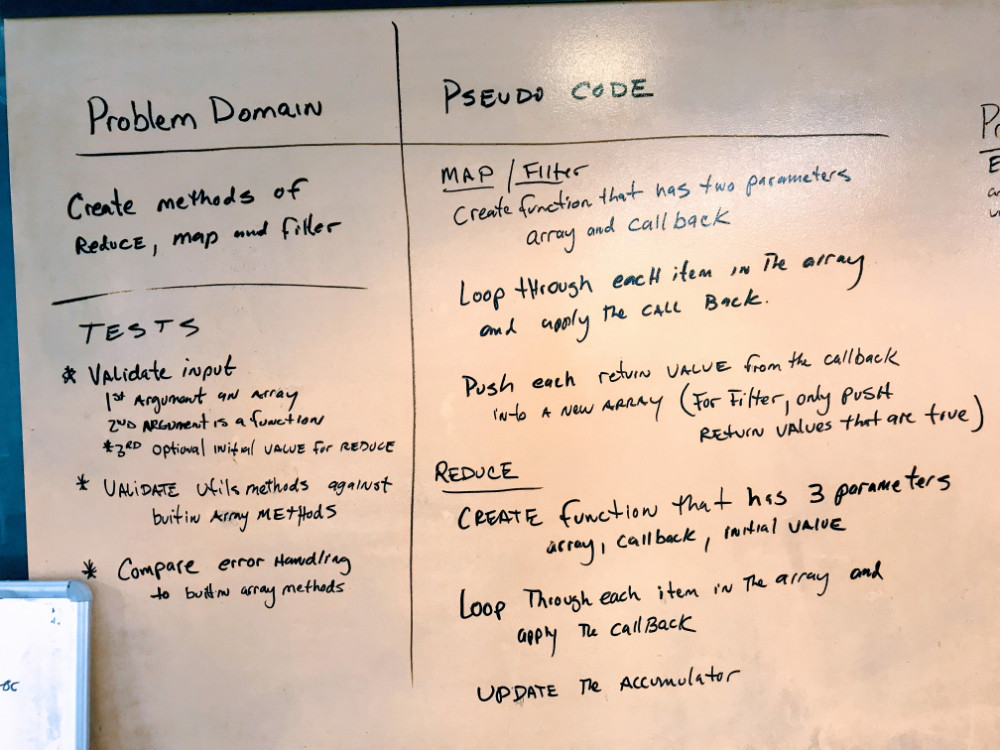 Problem Domain
Create methods of
REDUCE, map and filter
TESTS
* Validate input
1st Argument an Array
2ND ARGUMENT is a function
*3RD optional initial VALUE for REDUCE
* VALIDATE utils methods against
builtin Array METHODS
* Compare error Handling
to builtin array methods
PSEUDO CODE
MAP / Filter
Create function that has two parameters
array and callback
Loop through each item in the array
and apply the CALL BACK.
Push each return VALUE from the callback
into A new ARRAY (For Filter, only PUSH
RETURN VALUES that are true)
REDUCE
CREATE function that has 3 parameters
array, callback, initial VALUE
Loop Through each item in the array and
apply the callBACK
UPDATE the Accumulator